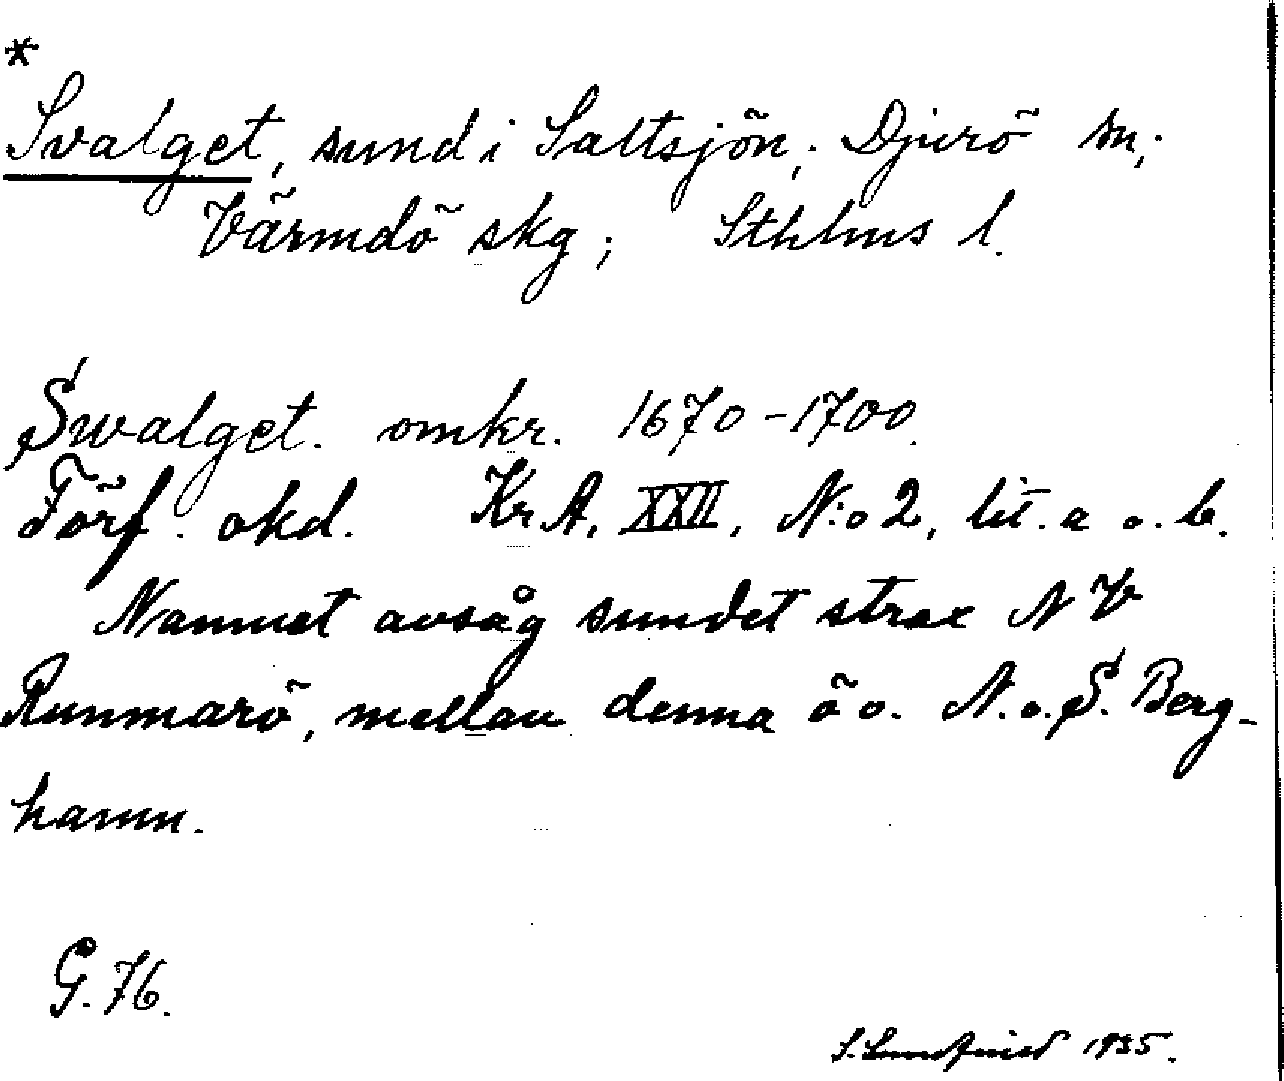 *
Svalget, sund i Saltsjön; Djurö sn;
Värmdö skg; Sthlms l.
Swalget. omkr. 1670-1700.
Förf. okd. Kr A, XXII, N:o 2, lit. a o. b.
Namnet avsåg sundet strax NV
Runmarö, mellan denna ö o. N. o. S. Berg-
hamn.
G. 76.
1935.